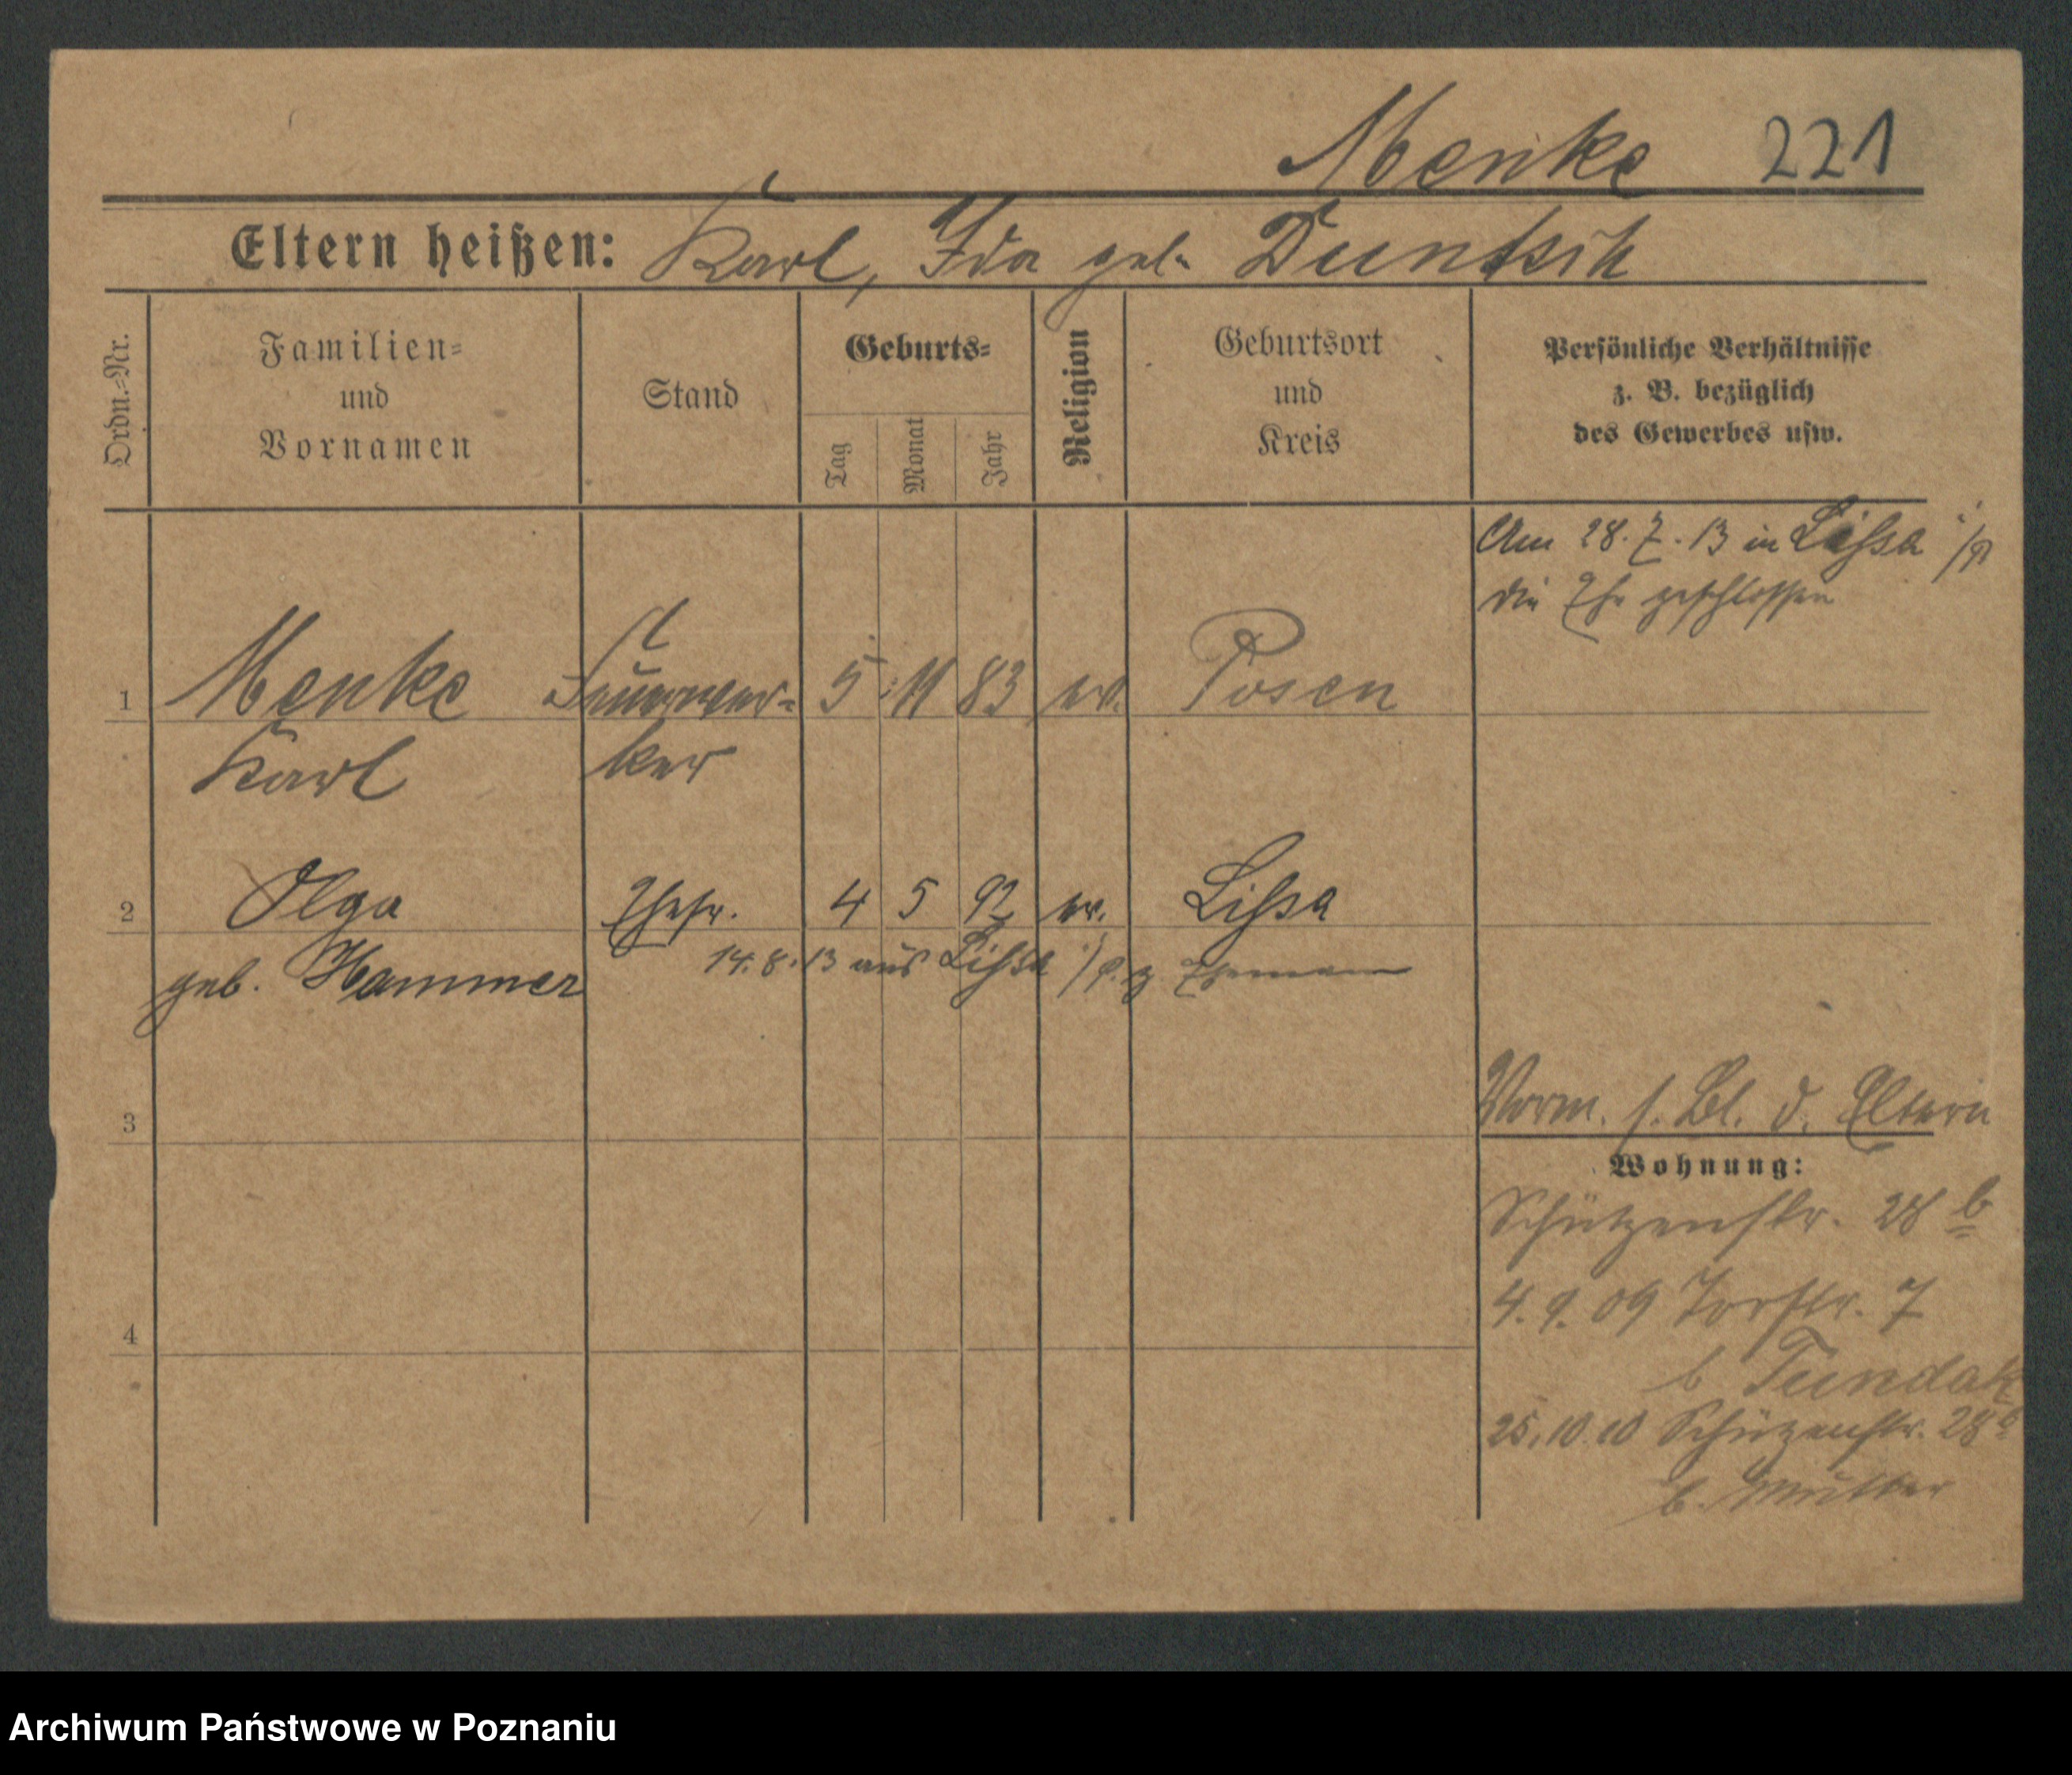 Menke 221
Eltern heißen: Karl, Ida geb. Duntsch
Ordn.-Nr.
Familien-
und
Vornamen
Stand
Geburts-
Tag
Monat
Jahr
Religion
Geburtsort
und
Kreis
Persönliche Verhältnisse
z. B. bezüglich
des Gewerbes usw.
Am 28.7.13 in Lissa i/P
die Ehe geschlossen
1 Menke Feuerwer- 5 11 83 ev. Posen
Karl ker
2 Olga Ehefr. 4 5 92 ev. Lissa
geb. Hammer 14.8.13 aus Lissa i/P. z Ehemann
3
Vorm. s. Bl. d. Eltern
Wohnung:
Schützenstr. 28 b
4.9.09 Torstr. 7
4
b Tundak
25.10.10 Schützenstr. 28 b
b. Mutter
Archiwum Państwowe w Poznaniu